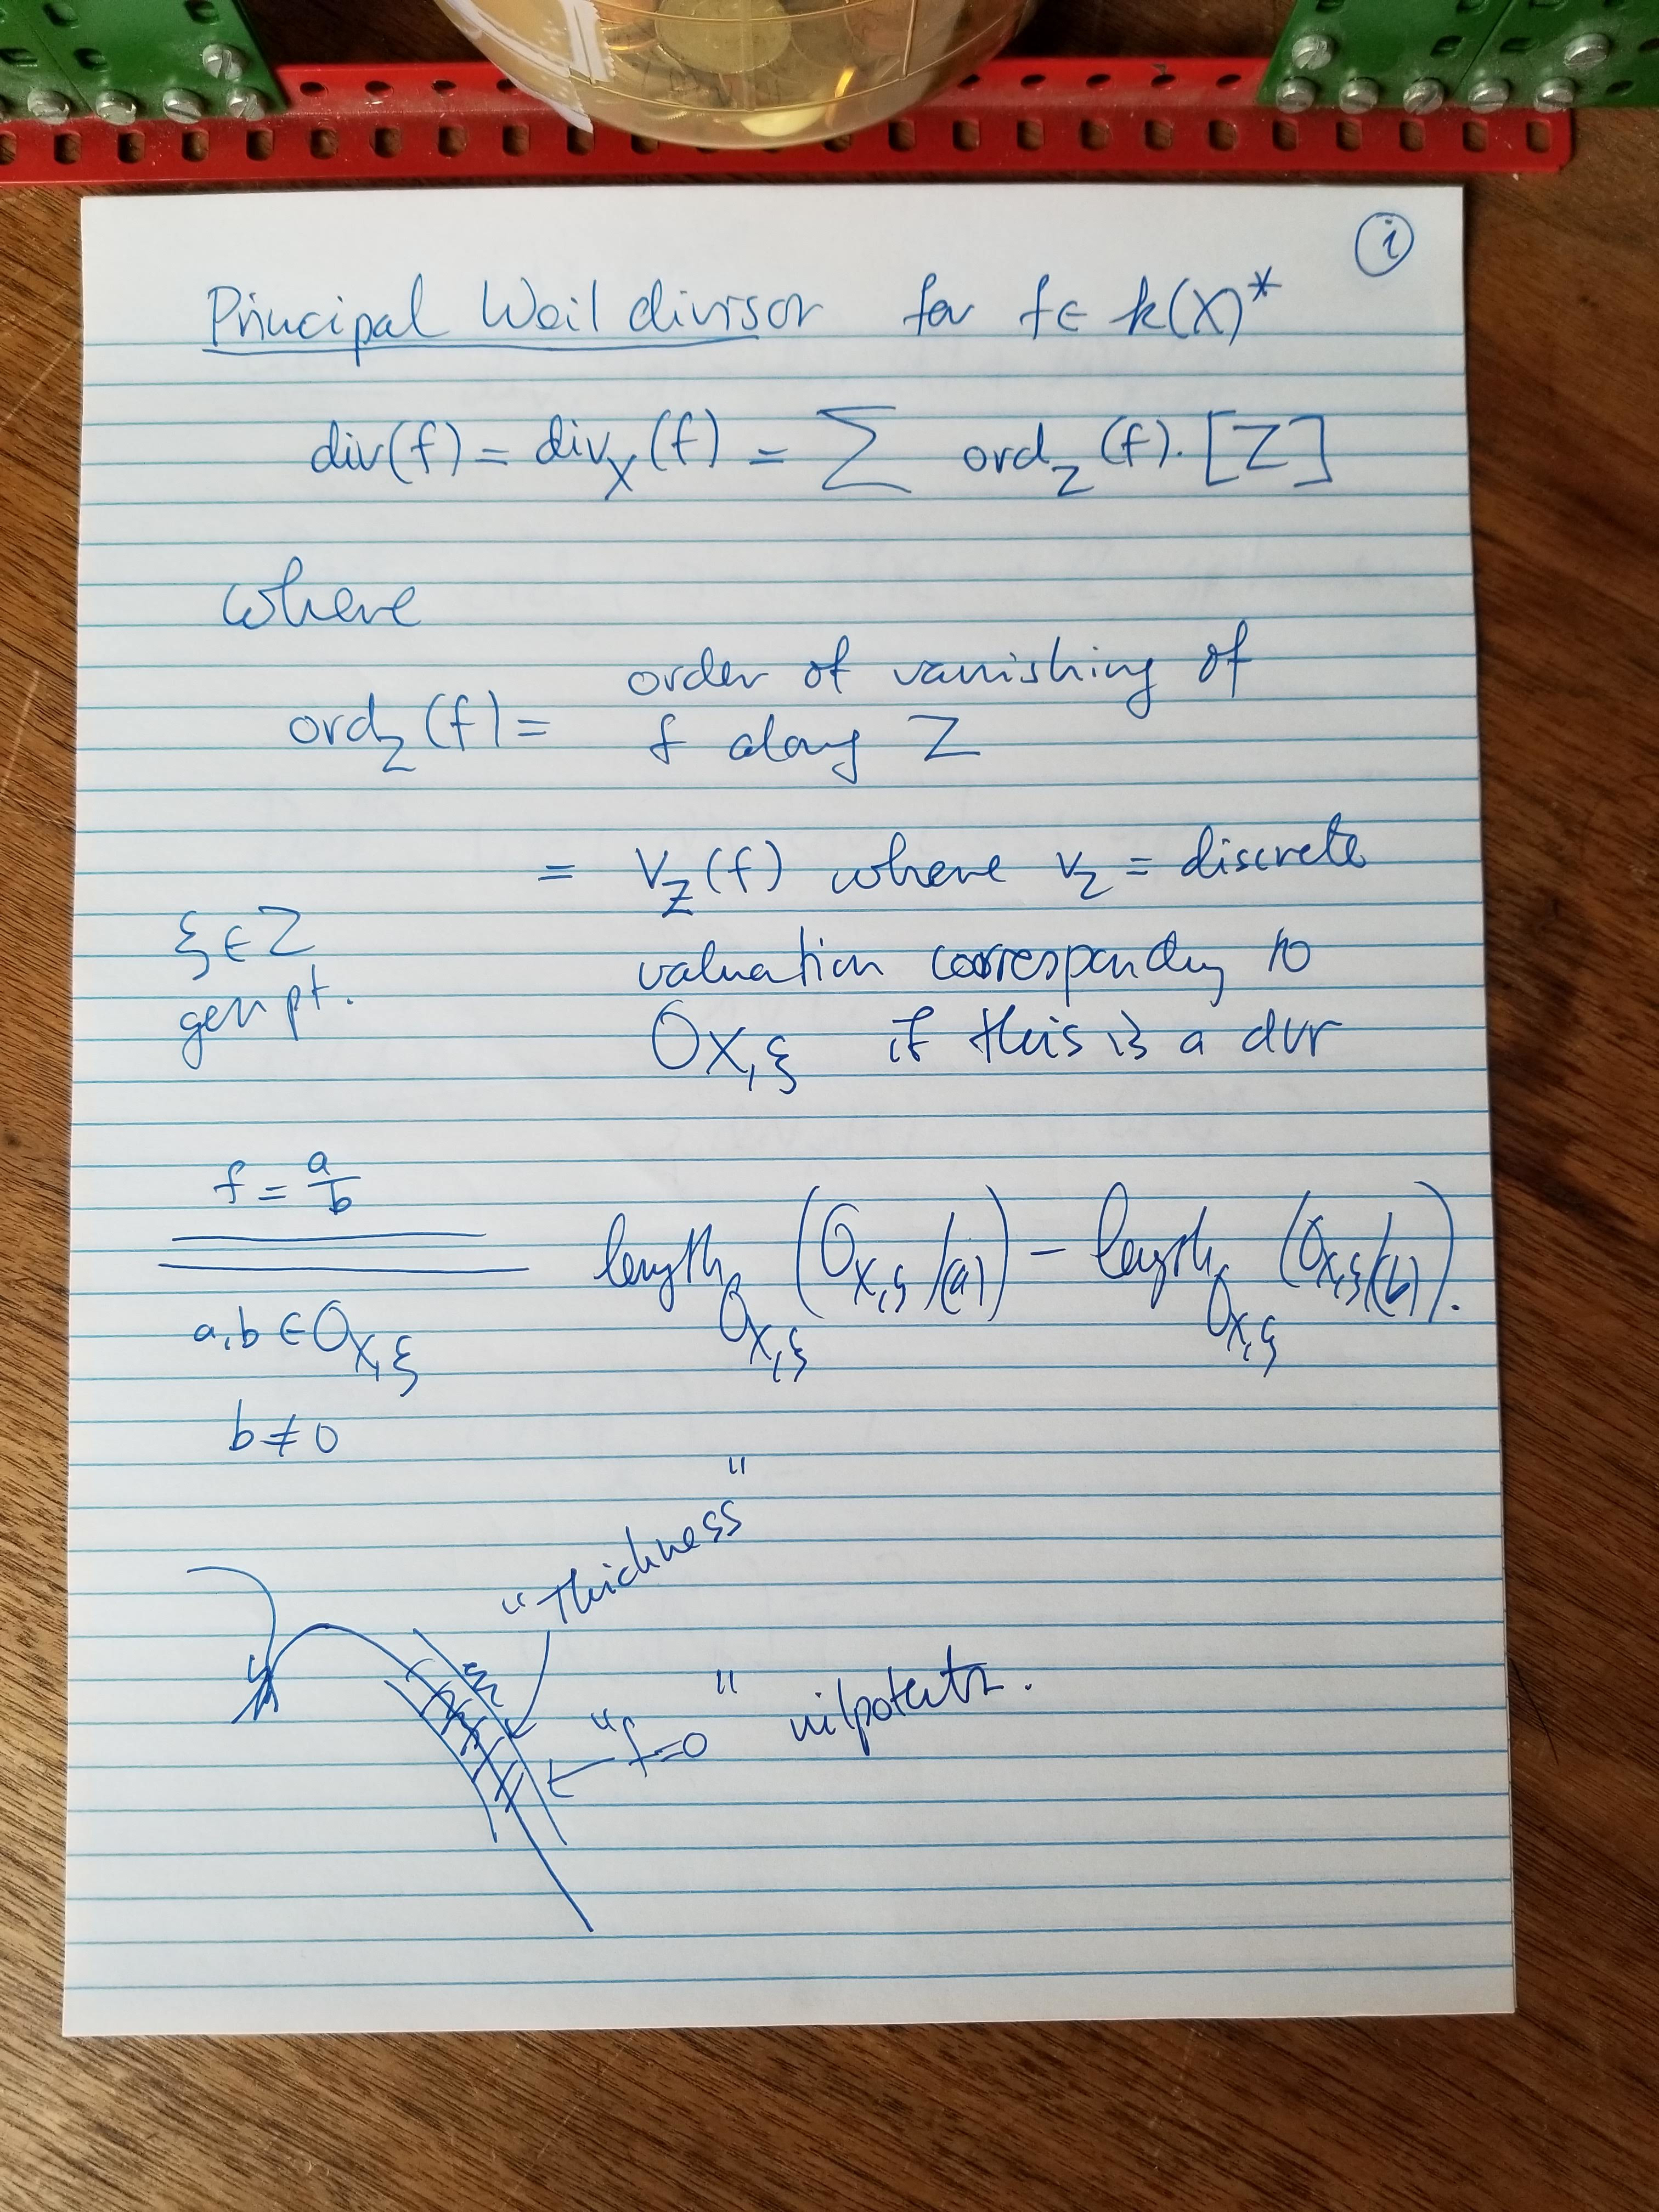 i
Principal Weil divisor for f ∈ k(X)*
div(f) = div_X(f) = ∑ ord_Z(f). [Z]
where
ord_Z(f) = order of vanishing of
f along Z
= v_Z(f) where v_Z = discrete
valuation correspondig to
ξ ∈ Z
gen pt.
O_X,ξ if this is a dvr
f = a/b
length_O_X,ξ (O_X,ξ/(a)) − length_O_X,ξ (O_X,ξ/(b)).
a,b ∈ O_X,ξ
b ≠ 0
"thickness"
"f=0" nilpotents.